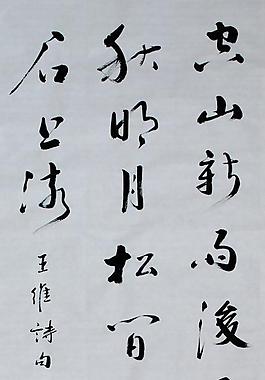 空山新雨後
秋明月松間
石上流
王維詩句